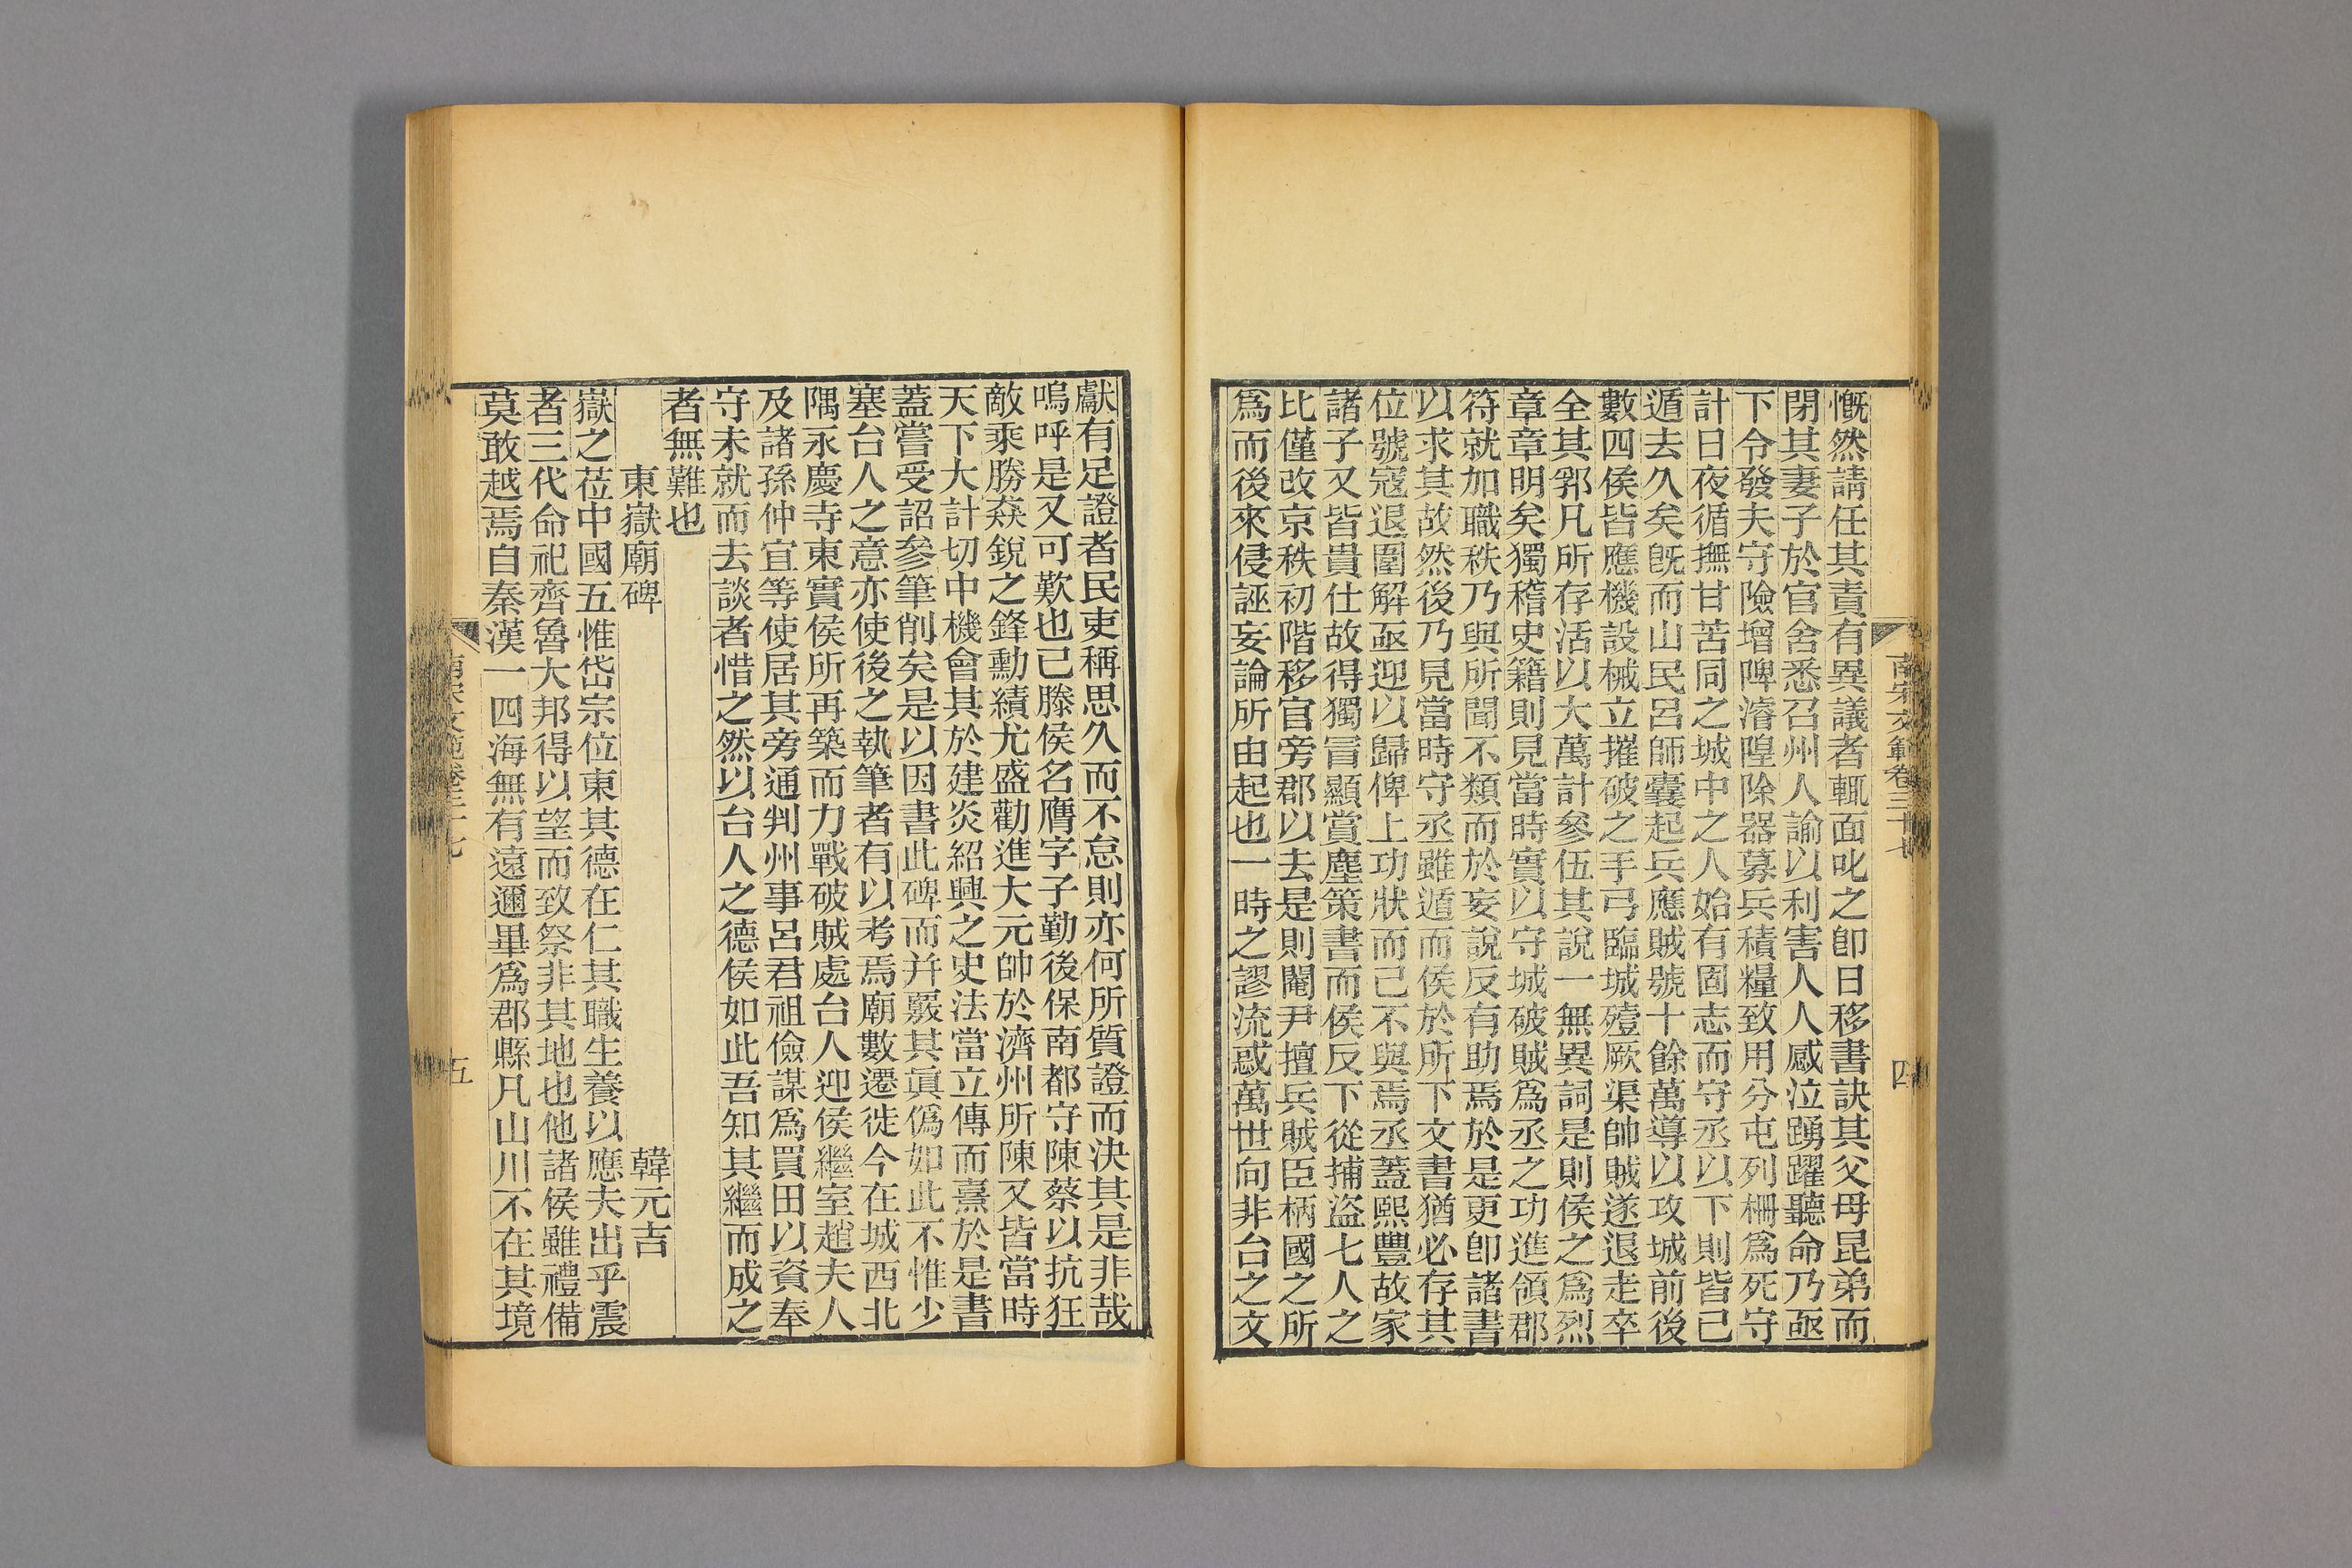 南宋文範卷三十七
四
慨然請任其責有異議者輒面叱之卽日移書訣其父母昆弟而
閉其妻子於官舍悉召州人諭以利害人人感泣踴躍聽命乃亟
下令發夫守險增陴濬隍除器募兵積糧致用分屯列柵爲死守
計日夜循撫甘苦同之城中之人始有固志而守丞以下則皆已
遁去久矣旣而山民呂師囊起兵應賊號十餘萬導以攻城前後
數四侯皆應機設械立摧破之手弓臨城殪厥渠帥賊遂退走卒
全其郛凡所存活以大萬計參伍其說一無異詞是則侯之爲烈
章章明矣獨稽史籍則見當時實以守城破賊爲丞之功進領郡
符就加職秩乃與所聞不類而於妄說反有助焉於是更卽諸書
以求其故然後乃見當時守丞雖遁而侯於所下文書猶必存其
位號寇退圍解亟迎以歸俾上功狀而己不與焉丞蓋熙豐故家
諸子又皆貴仕故得獨冒顯賞塵策書而侯反下從捕盜七人之
比僅改京秩初階移官旁郡以去是則閹尹擅兵賊臣柄國之所
爲而後來侵誣妄論所由起也一時之謬流惑萬世向非台之文
獻有足證者民吏稱思久而不怠則亦何所質證而決其是非哉
嗚呼是又可歎也已滕侯名膺字子勤後保南都守陳蔡以抗狂
敵乘勝猋銳之鋒勳績尤盛勸進大元帥於濟州所陳又皆當時
天下大計切中機會其於建炎紹興之史法當立傳而熹於是書
蓋嘗受詔參筆削矣是以因書此碑而并覈其眞僞如此不惟少
塞台人之意亦使後之執筆者有以考焉廟數遷徙今在城西北
隅永慶寺東實侯所再築而力戰破賊處台人迎侯繼室趙夫人
及諸孫仲宜等使居其旁通判州事呂君祖儉謀爲買田以資奉
守未就而去談者惜之然以台人之德侯如此吾知其繼而成之
者無難也
東嶽廟碑
韓元吉
嶽之莅中國五惟岱宗位東其德在仁其職生養以應夫出乎震
者三代命祀齊魯大邦得以望而致祭非其地也他諸侯雖禮備
莫敢越焉自秦漢一四海無有遠邇畢爲郡縣凡山川不在其境
南宋文範卷三十七
五